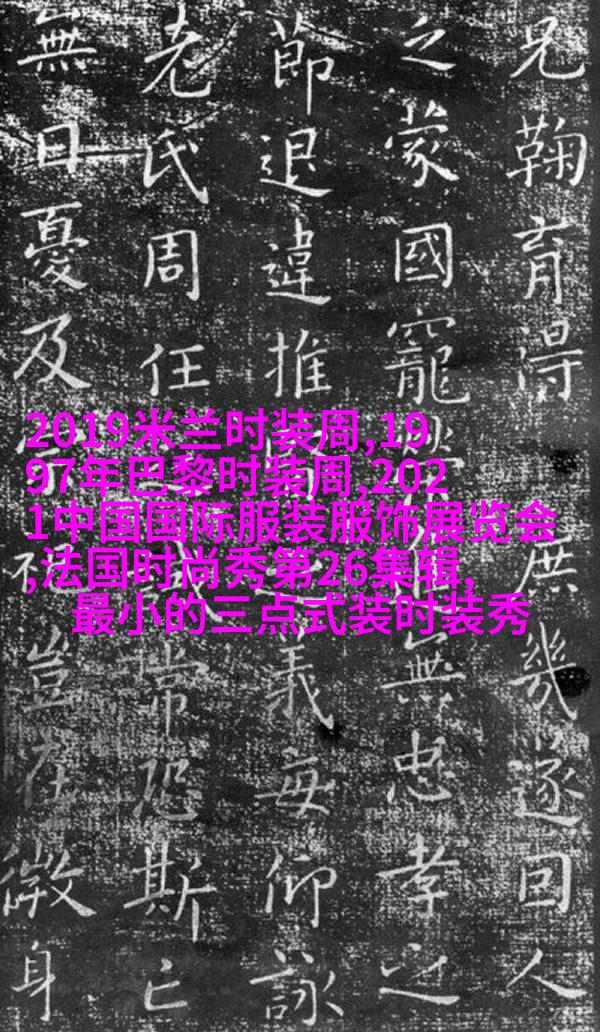 兄鞠育得庶幾遂回人
之蒙國寵無忠孝之
節退違推義每仰詠
老氏周任常恐斯亡
無日憂及豈在微身
2019米兰时装周,19
97年巴黎时装周,202
1中国国际服装服饰展览会
,法国时尚秀第26集辑,
最小的三点式装时装秀